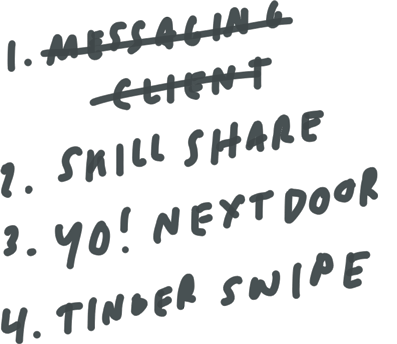 1. MESSAGING
CLIENT
2. SKILL SHARE
3. YO! NEXTDOOR
4. TINDER SWIPE